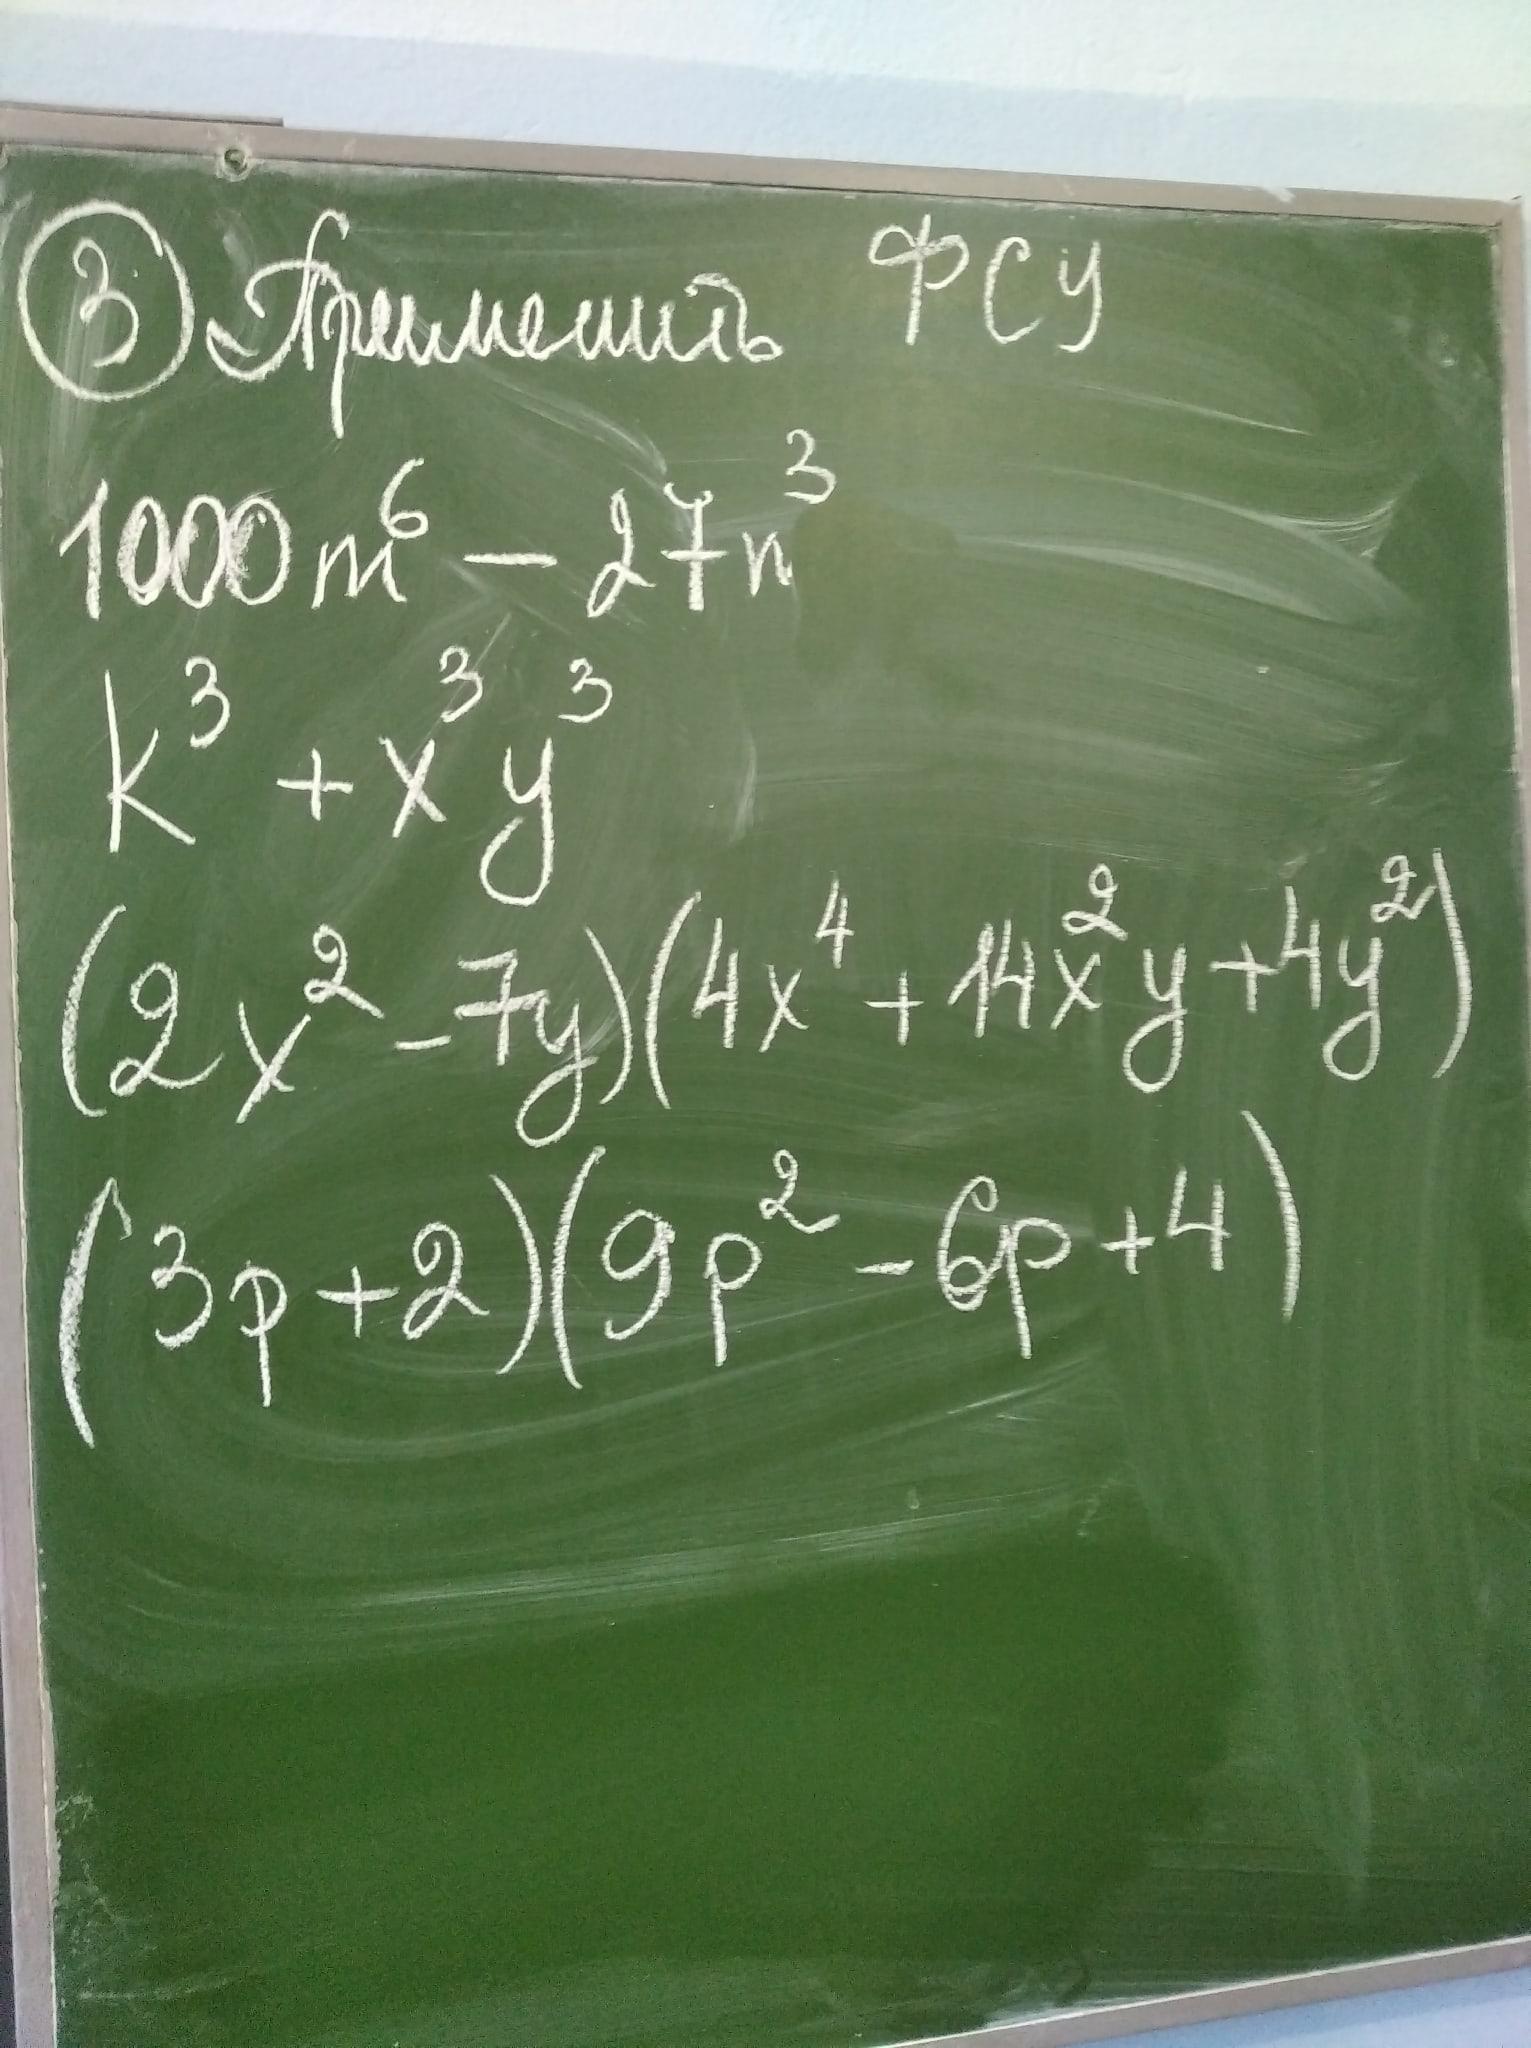 ③ Применить ФСУ
1000m⁶ - 27n³
k³ + x³y³
(2x² - 7y)(4x⁴ + 14x²y + 4y²)
(3p + 2)(9p² - 6p + 4)